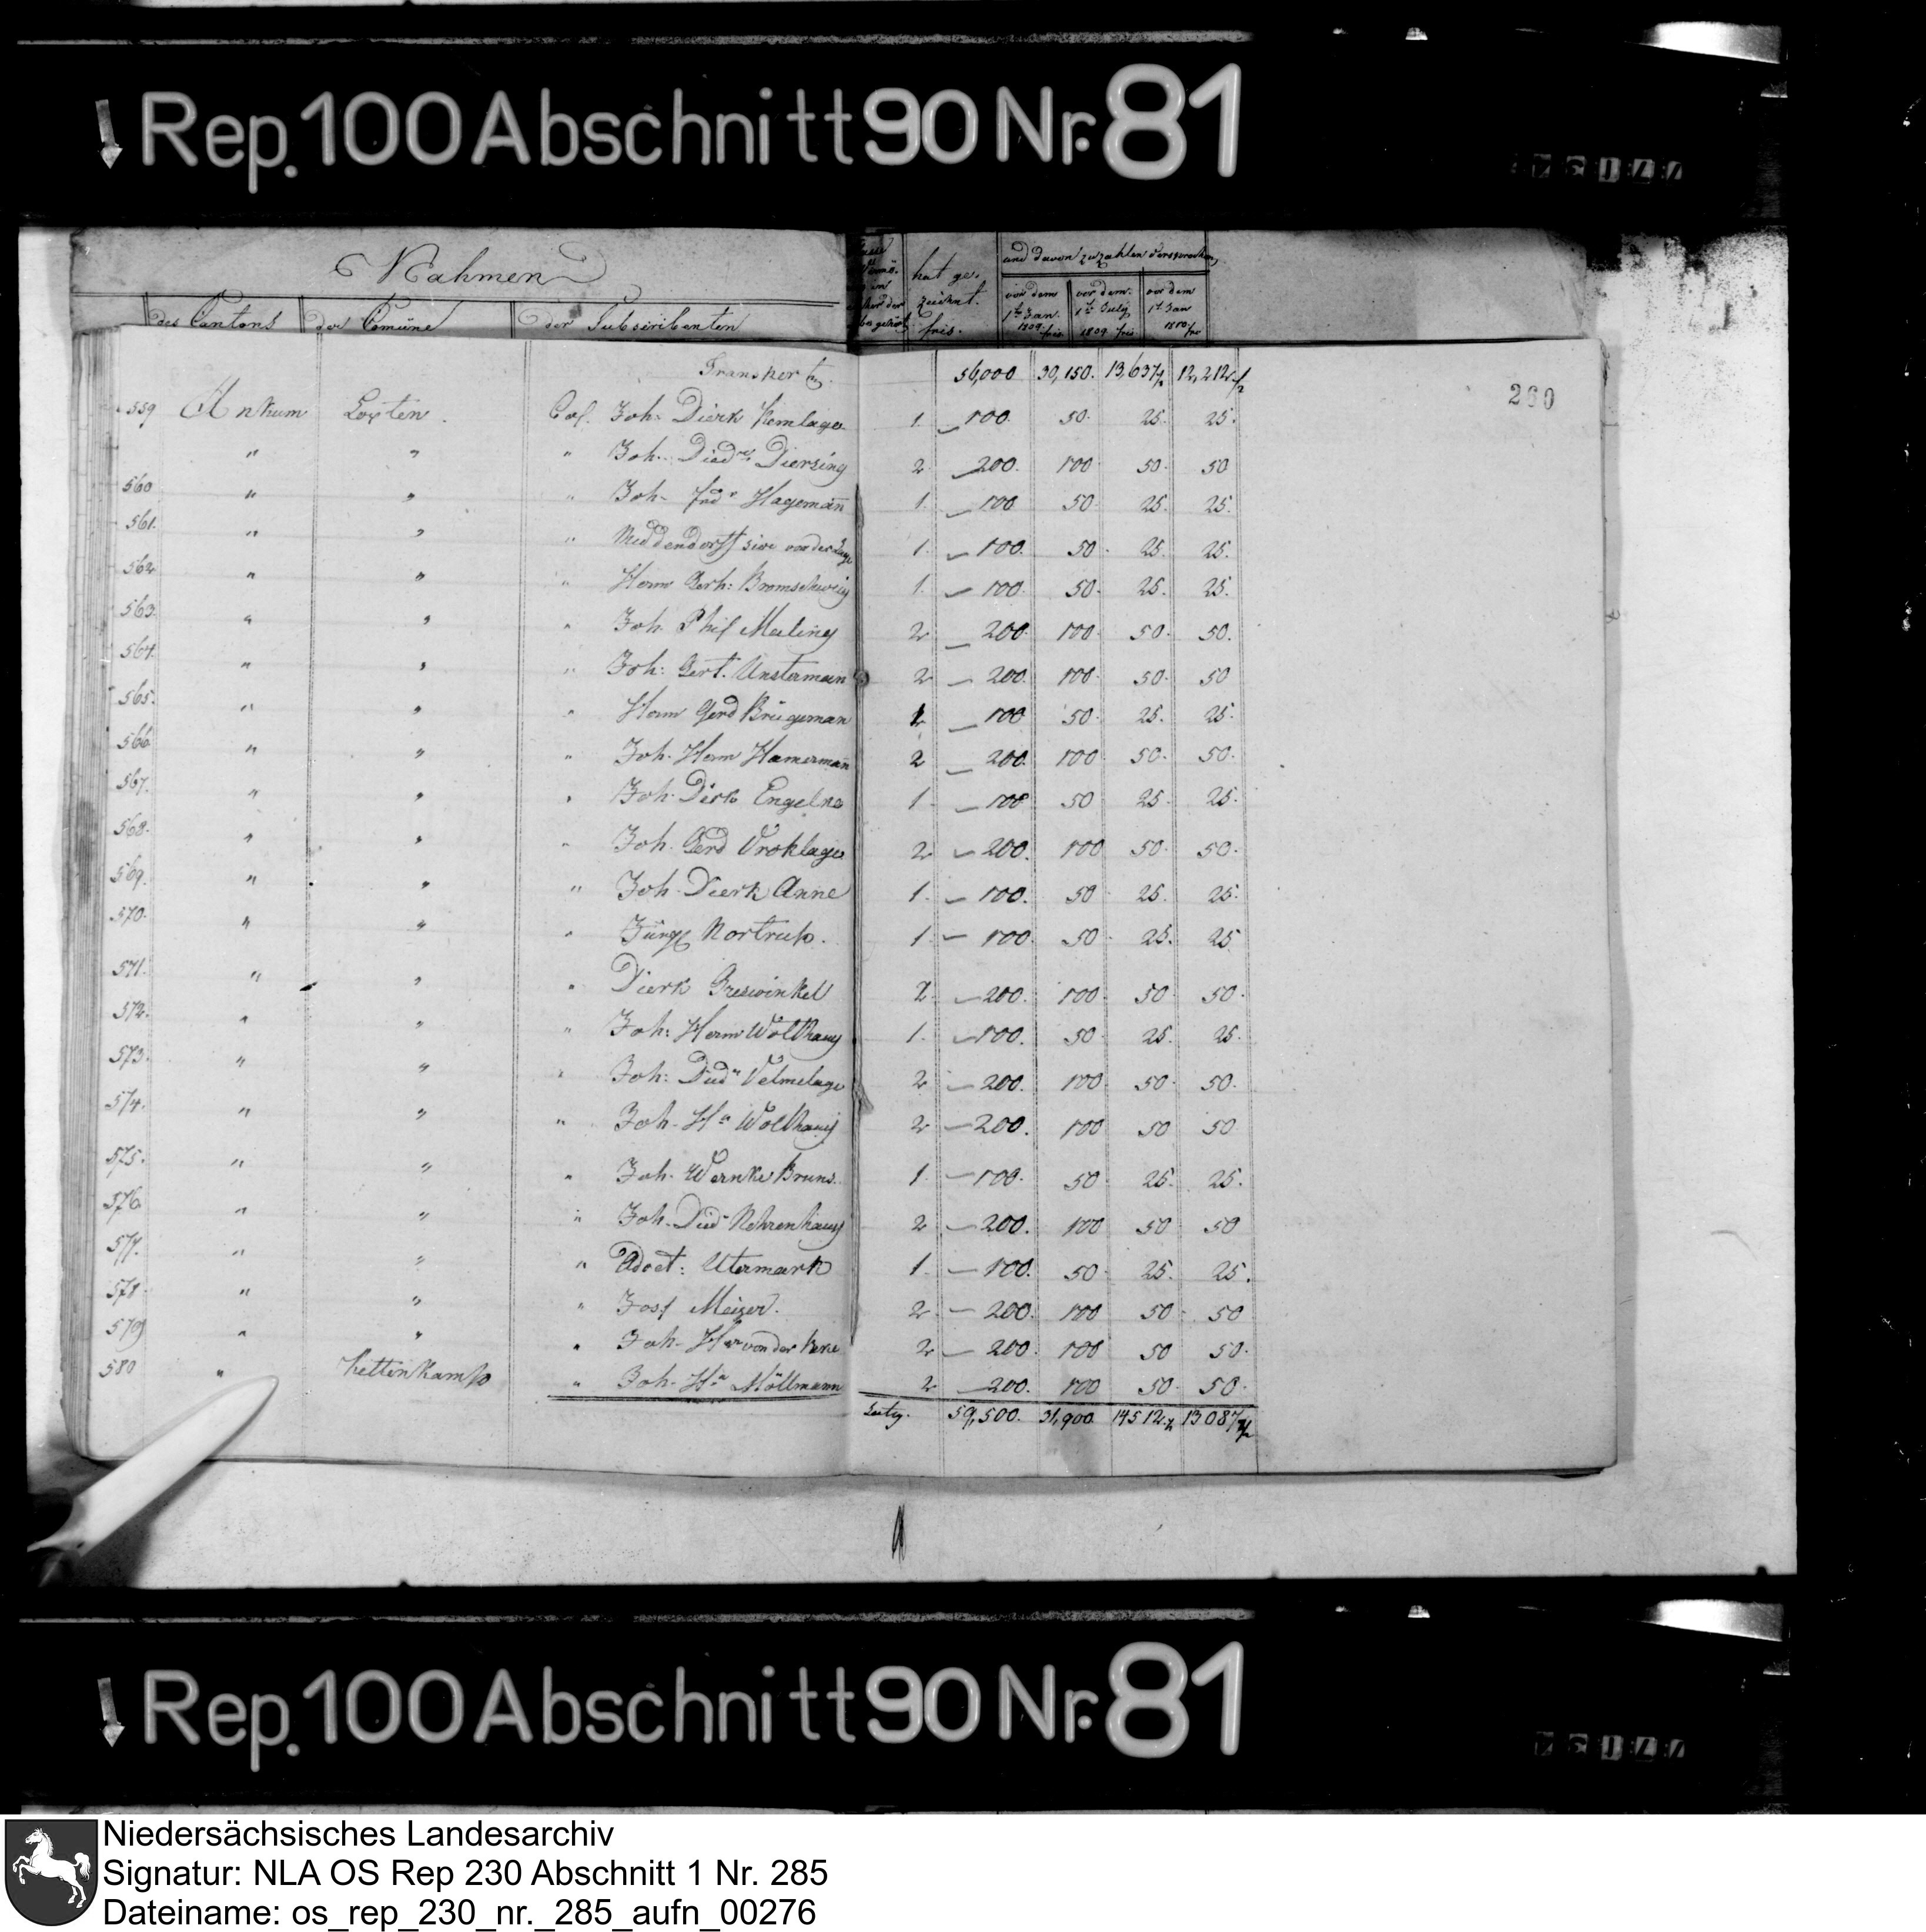 Rep. 100 Abschnitt 90 Nr. 81
Nahmen
des Cantons der Comüne der Subscribenten
hat ge- zeichnt. frcs.
und davon zuzahlen versprochen
vor dem 1t Jan. 1809. frcs. vor dem 1t July 1809 frcs vor dem 1t Jan 1810 frc
260
Transport 56,000 30,150. 13,637½ 12,212½
559 Ankum Loxten. Col. Joh. Dierk Kemlage 1. 100. 50. 25. 25.
" " " Joh. Diedr. Diersing 2 200. 100. 50. 50
560 " " " Joh. Frd. Hagemañ 1. 100 50. 25. 25.
561. " " " Middendorff sive von der 1. 100. 50. 25. 25.
562 " " " Herm Gerh: Bromschwig 1. 100. 50. 25. 25.
563. " " " Joh. Phil Meeling 2 200. 100. 50. 50.
564. " " " Joh: Gert. Unsterman 2 200. 100. 50. 50
565. " " " Herm Gerd Brügeman 1 100 50. 25. 25.
566 " " " Joh. Herm Hamermañ 2 200. 100 50. 50.
567. " " " Joh. Dirk Engelke 1. 100 50 25 25.
568. " " " Joh. Gerd Vroklage 2 200. 100 50. 50.
569. " " " Joh. Dierk Anne 1. 100. 50 25. 25.
570. " " " Jürg Nortrup. 1. 100. 50. 25. 25
571. " " " Dierk Greswinkel 2 200. 100. 50. 50.
572. " " " Joh: Herm Wolthaus 1. 100. 50. 25. 25.
573. " " " Joh: Died. Velmelage 2 200. 100 50. 50.
574. " " " Joh. Hr. Wolthaus 2 200. 100 50 50.
575. " " " Joh. Wernke Bruns. 1 100. 50 25. 25.
576. " " " Joh. Died. Nehrenhaus 2 200. 100 50 50
577. " " " Adoct: Utermark 1. 100. 50. 25. 25.
578. " " " Josf Meiser. 2 200. 100 50. 50
579 " " " Joh. Hr von der Heke 2 200. 100 50 50.
580 " Kettenkamp " Joh. Hr. Möllmann 2 200. 100 50. 50.
59,500. 31,900 14512.½ 13087½
Rep. 100 Abschnitt 90 Nr. 81
Niedersächsisches Landesarchiv
Signatur: NLA OS Rep 230 Abschnitt 1 Nr. 285
Dateiname: os_rep_230_nr._285_aufn_00276